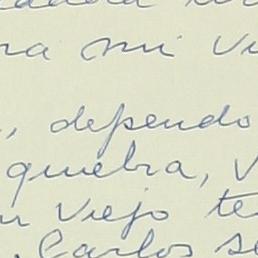 ra mi vi
, dependo
quiebra, v
Viejo te
Carlos se